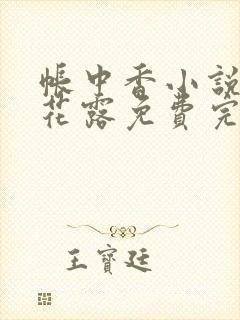 帳中香小說
花露免費完
王寶廷